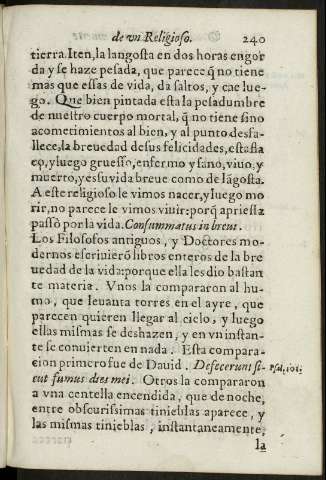 de vn Religioso. 240
tierra. Iten, la langosta en dos horas engor
da y se haze pesada, que parece q̃ no tiene
mas que essas de vida, da saltos, y cae lue-
go. Que bien pintada esta la pesadumbre
de nuestro cuerpo mortal, q̃ no tiene sino
acometimientos al bien, y al punto desfa-
llece, la breuedad de sus felicidades, esta sta
co, y luego gruesso, enfermo y sano, viuo, y
muerto, y es su vida breue como de lãgosta.
A este religioso le vimos nacer, y luego mo
rir, no parece le vimos viuir: porq̃ apriessa
passò por la vida. Consummatus in breui.
Los Filosofos antiguos, y Doctores mo-
dernos escriuierõ libros enteros de la bre
uedad de la vida: porque ella les dio bastan
te materia. Vnos la compararon al hu-
mo, que leuanta torres en el ayre, que
parecen quieren llegar al cielo, y luego
ellas mismas se deshazen, y en vn instan-
te se conuierten en nada. Esta compara-
cion primero fue de Dauid. Defecerunt si-
cut fumus dies mei. Otros la compararon
Psal. 101.
a vna centella encendida, que de noche,
entre obscurissimas tinieblas aparece, y
las mismas tinieblas, instantaneamente,
la